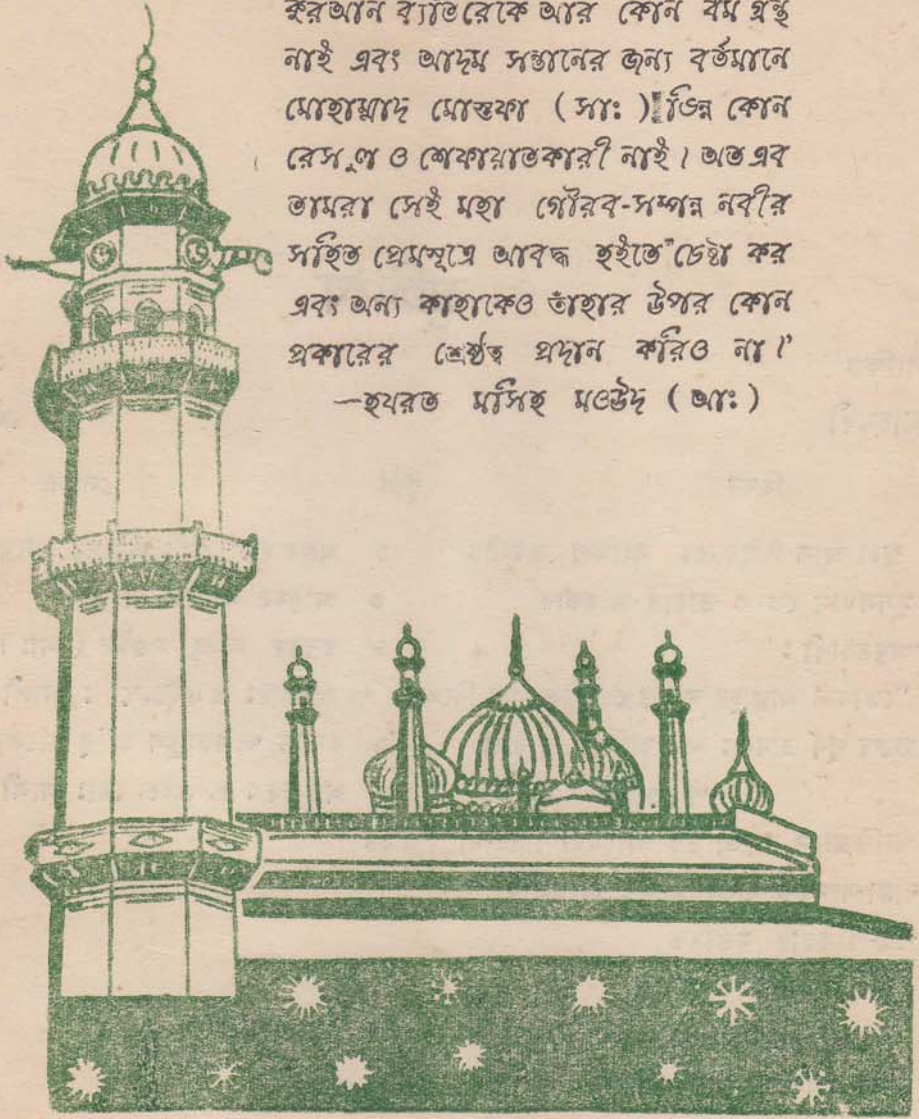 কুরআন ব্যতিরেকে আর কোন ধর্ম গ্রন্থ
নাই এবং আদম সন্তানের জন্য বর্তমানে
মোহাম্মাদ মোস্তফা (সাঃ) ভিন্ন কোন
রেসুল ও শেফায়াতকারী নাই। অতএব
তোমরা সেই মহা গৌরব-সম্পন্ন নবীর
সহিত প্রেমসূত্রে আবদ্ধ হইতে চেষ্টা কর
এবং অন্য কাহাকেও তাঁহার উপর কোন
প্রকারের শ্রেষ্ঠত্ব প্রদান করিও না।’
—হযরত মসিহ মওউদ (আঃ)